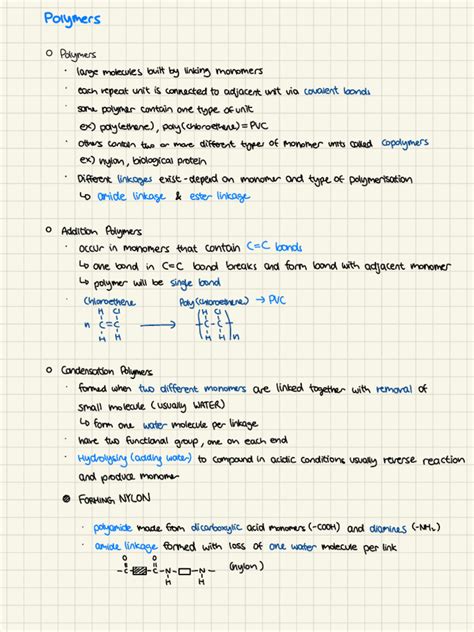 Polymers
Polymers
large molecules built by linking monomers
each repeat unit is connected to adjacent unit via covalent bonds
some polymer contain one type of unit
ex) poly(ethene), poly(chloroethene) = PVC
others contain two or more different types of monomer units called copolymers
ex) nylon, biological protein
Different linkages exist - depend on monomer and type of polymerisation
↳ amide linkage & ester linkage
Addition Polymers
occur in monomers that contain C=C bonds
↳ one bond in C=C bond breaks and form bond with adjacent monomer
↳ polymer will be single bond
Chloroethene Poly(chloroethene) → PVC
H Cl H Cl
n C=C → C-C n
H H H H
Condensation Polymers
formed when two different monomers are linked together with removal of
small molecule (usually WATER)
↳ form one water molecule per linkage
have two functional group, one on each end
Hydrolysing (adding water) to compound in acidic conditions usually reverse reaction
and produce monomer
FORMING NYLON
polyamide made from dicarboxylic acid monomers (-COOH) and diamines (-NH₂)
amide linkage formed with loss of one water molecule per link
O O (nylon)
-C-C-N-N-
H H